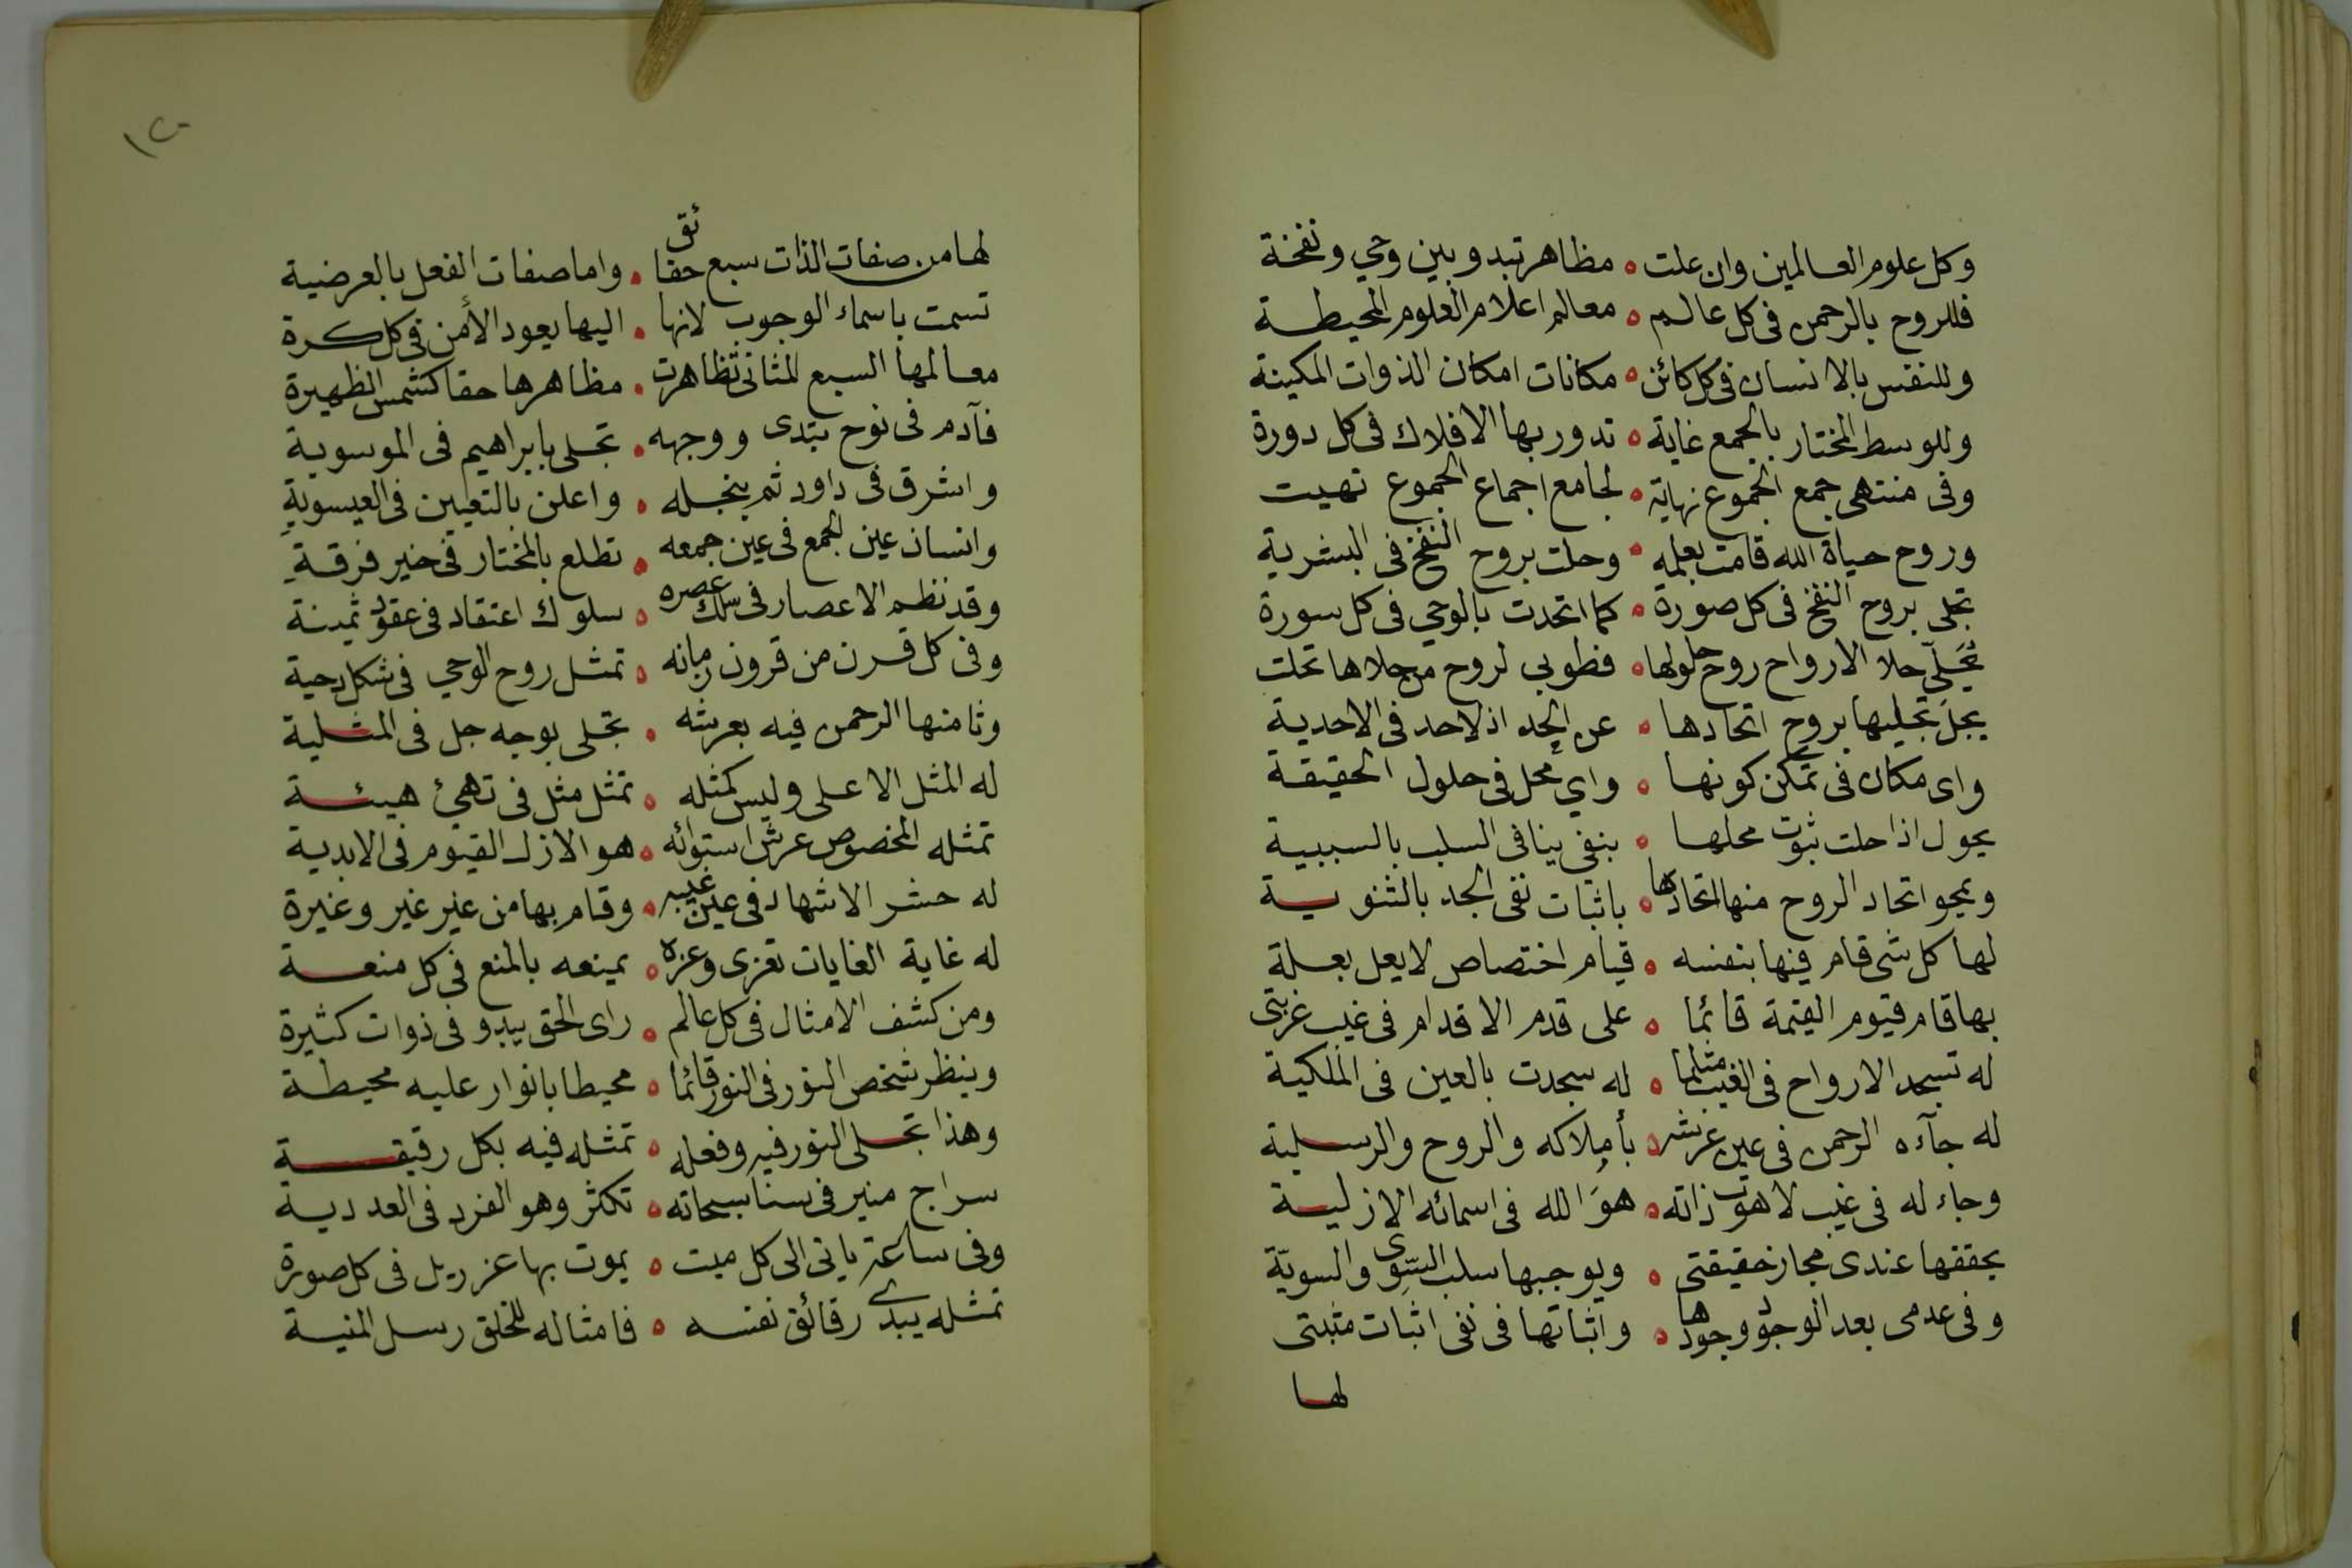 وكل علوم العالمين وان علت • مظاهر تبدو بين وحي ونفخة
فللروح بالرحمن فى كل عالم • معالم اعلام العلوم المحيطة
وللنفس بالانسان فى كل كائن • مكانات امكان الذوات المكينة
وللوسط المختار بالجمع غاية • تدور بها الافلاك فى كل دورة
وفى منتهى جمع الجموع نهاية • لجامع اجماع الجموع تهيت
وروح حياة الله قامت بعلمه • وحلت بروح النفخ فى البشرية
تجلى بروح النفخ فى كل صورة • كما اتحدت بالوحي فى كل سورة
يُحَلّي حلا الارواح روح حلولها • فطوبى لروح من حلاها تحلت
يجلّ تجليها بروح اتحادها • عن الحد اذ لاحد فى الاحدية
واى مكان فى تمكن كونها • واي محل فى حلول الحقيقة
يحول اذا حلت ثبوت محلها • بنفي ينافى السلب بالسببية
ويمحو اتحاد الروح منها اتحادها • باثبات نفى الحد بالثنوية
لها كل شى قام فيها بنفسه • قيام اختصاص لا يعل بعلة
بها قام قيوم القيمة قائما • على قدم الاقدام فى غيب غربتى
له تسجد الارواح فى الغيب مثلما • له سجدت بالعين فى الملكية
له جآءه الرحمن فى عين عرشه • بأملاكه والروح والرسلية
وجاء له فى غيب لاهوت ذاته • هوَ الله فى اسمائه الازلية
يحققها عندى مجاز حقيقتى • ويوجبها سلب السّوى والسويّة
وفى عدمى بعد الوجود وجودها • واثباتها فى نفى اثبات مثبتى
لها
١٢٠
لها من صفات الذات سبع حقائق • واما صفات الفعل بالعرضية
تسمت باسماء الوجوب لانها • اليها يعود الأمن فى كل كرة
معالمها السبع المثانى تظاهرت • مظاهرها حقا كشمس الظهيرة
فآدم فى نوح يبتدى ووجهه • تجلى بابراهيم فى الموسوية
واشرق فى داود ثم بنجله • واعلن بالتعيين فى العيسويةِ
وانسان عين الجمع فى عين جمعه • تطلع بالمختار فى خير فرقةِ
وقد نظم الاعصار فى سلك عصره • سلوك اعتقاد فى عقود ثمينة
وفى كل قرن من قرون زمانه • تمثل روح الوحي فى شكل دحية
وثامنها الرحمن فيه بعرشه • تجلى بوجه جل فى المثلية
له المثل الاعلى وليس كمثله • تمثل مثل فى تهيئ هيئة
تمثله المخصوص عرش استوائه • هو الازل القيوم فى الابدية
له حشر الاشهاد فى عين غيبه • وقام بها من غير غير وغيرة
له غاية الغايات تعزى وعزه • يمنعه بالمنع فى كل منعة
ومن كشف الامثال فى كل عالم • راى الحق يبدو فى ذوات كثيرة
وينظر شخص النور فى النور قائما • محيطا بانوار عليه محيطة
وهذا تجلى النور فيه وفعله • تمثله فيه بكل رقيقة
سراج منير فى سنا سبحاته • تكثر وهو الفرد فى العددية
وفى ساعة ياتى الى كل ميت • يموت بها عزريل فى كل صورة
تمثله يبدى رقائق نفسه • فامثاله للخلق رسل المنية